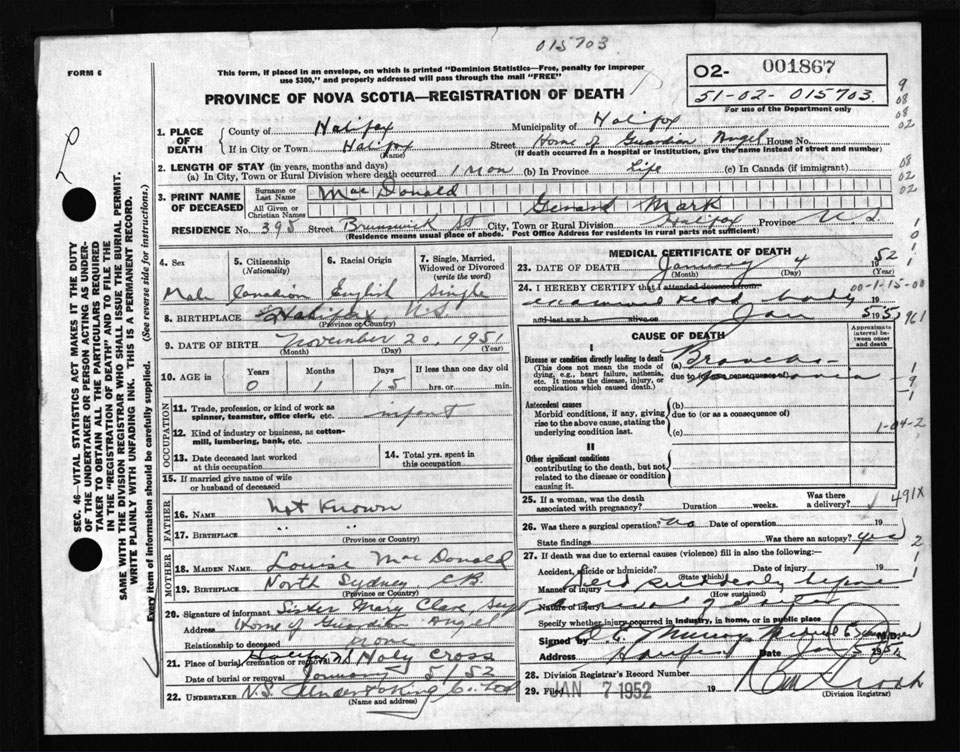 015703
FORM 6
This form, if placed in an envelope, on which is printed "Dominion Statistics—Free, penalty for improper
use $300," and properly addressed will pass through the mail "FREE"
PROVINCE OF NOVA SCOTIA—REGISTRATION OF DEATH
02- 001867
51-02-015703
For use of the Department only
9
08
08
02
1. PLACE OF DEATH
County of Halifax Municipality of Halifax
If in City or Town Halifax (Name) Street Home of Guardian Angel House No.
(If death occurred in a hospital or institution, give the name instead of street and number)
2. LENGTH OF STAY (in years, months and days)
(a) In City, Town or Rural Division where death occurred 1 Mon (b) In Province Life (c) In Canada (if immigrant)
08
02
3. PRINT NAME OF DECEASED
Surname or Last Name MacDonald
All Given or Christian Names Gerard Mark
RESIDENCE No. 395 Street Brunswick St City, Town or Rural Division Halifax Province N.S.
(Residence means usual place of abode. Post Office Address for residents in rural parts not sufficient)
4. Sex Male
5. Citizenship (Nationality) Canadian
6. Racial Origin English
7. Single, Married, Widowed or Divorced (write the word) Single
8. BIRTHPLACE Halifax N.S.
(Province or Country)
9. DATE OF BIRTH November 20, 1951
(Month) (Day) (Year)
10. AGE in Years 0 Months 1 Days 15 If less than one day old hrs. or min.
OCCUPATION
11. Trade, profession, or kind of work as spinner, teamster, office clerk, etc. infant
12. Kind of industry or business, as cotton-mill, lumbering, bank, etc.
13. Date deceased last worked at this occupation
14. Total yrs. spent in this occupation
15. If married give name of wife or husband of deceased
FATHER
16. NAME Not Known
17. BIRTHPLACE " "
(Province or Country)
MOTHER
18. MAIDEN NAME Louise MacDonald
19. BIRTHPLACE North Sydney, C.B
(Province or Country)
20. Signature of informant Sister Mary Clare, Supt
Address Home of Guardian Angel
Relationship to deceased None
21. Place of burial, cremation or removal Halifax NS Holy Cross
Date of burial or removal January 5/52
22. UNDERTAKER N.S. Undertaking Co. Ltd
(Name and address)
MEDICAL CERTIFICATE OF DEATH
23. DATE OF DEATH January 4 1952
(Month) (Day) (Year)
24. I HEREBY CERTIFY that I attended deceased from
examined dead body
00-1-15-00
and last saw h alive on Jan 5 1952
961
CAUSE OF DEATH
Approximate interval between onset and death
I
Disease or condition directly leading to death (a) Broncho-
(This does not mean the mode of dying, e.g., heart failure, asthenia, etc. It means the disease, injury, or complication which caused death.)
due to (or as a consequence of) pneumonia
Antecedent causes (b)
Morbid conditions, if any, giving rise to the above cause, stating the underlying condition last. due to (or as a consequence of)
(c)
1-04-2
II
Other significant conditions
contributing to the death, but not related to the disease or condition causing it.
25. If a woman, was the death associated with pregnancy? Duration weeks. Was there a delivery?
491X
26. Was there surgical operation? no Date of operation 19
State findings Was there an autopsy? yes
2
27. If death was due to external causes (violence) fill in also the following:—
Accident, suicide or homicide? Date of injury 19
(State which)
Manner of injury Died suddenly before
(How sustained)
Nature of injury
Specify whether injury occurred in industry, in home, or in public place
Signed by Murray Medical Examiner M.D.
Address Halifax Date Jan 5 1952
28. Division Registrar's Record Number
29. Filed JAN 7 1952 19
(Division Registrar)
SEC. 46—VITAL STATISTICS ACT MAKES IT THE DUTY
OF THE UNDERTAKER OR PERSON ACTING AS UNDER-
TAKER TO OBTAIN ALL THE PARTICULARS REQUIRED
IN THE "REGISTRATION OF DEATH" AND TO FILE THE
SAME WITH THE DIVISION REGISTRAR WHO SHALL ISSUE THE BURIAL PERMIT.
WRITE PLAINLY WITH UNFADING INK. THIS IS A PERMANENT RECORD.
Every item of information should be carefully supplied. (See reverse side for instructions.)